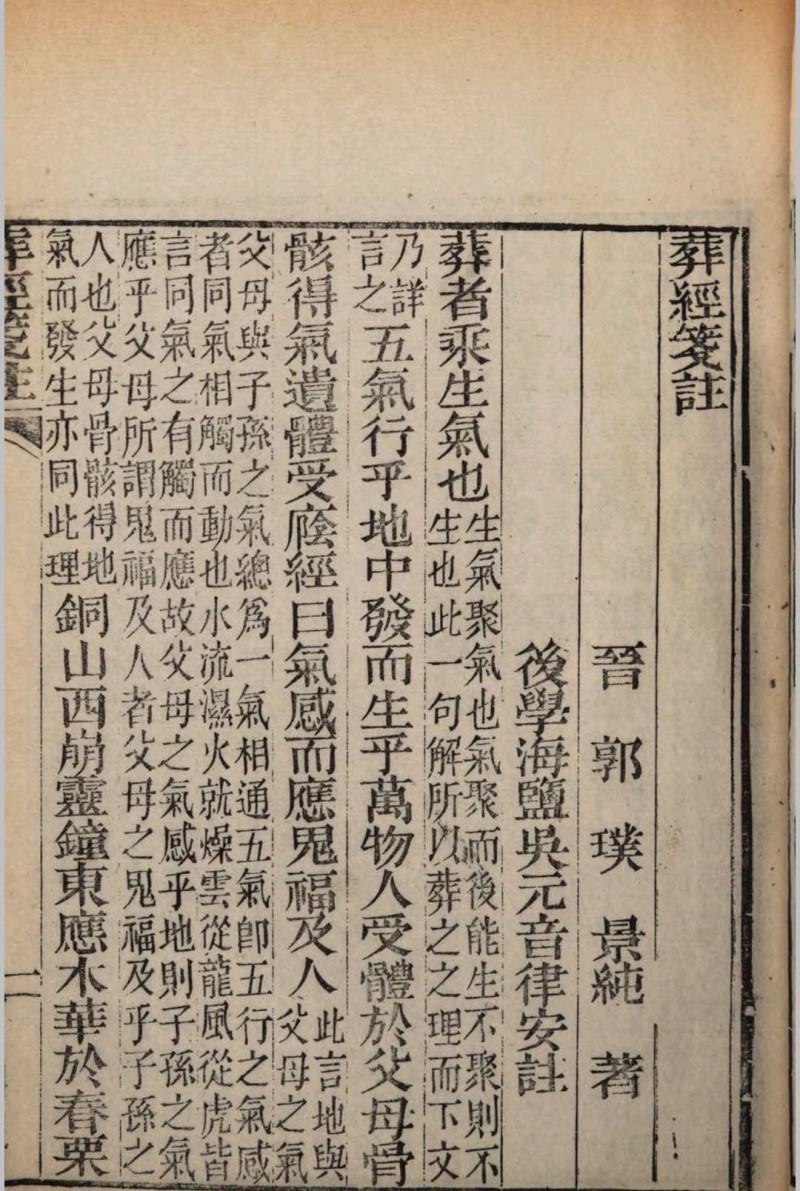 葬經箋註
晉郭璞景純著
後學海鹽吳元音律安註
葬者乘生氣也
生氣聚氣也氣聚而後能生不聚則不
生也此一句解所以葬之之理而下文
乃詳
言之
五氣行乎地中發而生乎萬物人受體於父母骨
骸得氣遺體受廕經曰氣感而應鬼福及人
此言地與
父母之氣
父母與子孫之氣總爲一氣相通五氣卽五行之氣感
者同氣相觸而動也水流濕火就燥雲從龍風從虎皆
言同氣之有觸而應故父母之氣感乎地則子孫之氣
應乎父母所謂鬼福及人者父母之鬼福及乎子孫之
人也父母骨骸得地
氣而發生亦同此理
銅山西崩靈鐘東應木華於春栗
葬經箋註